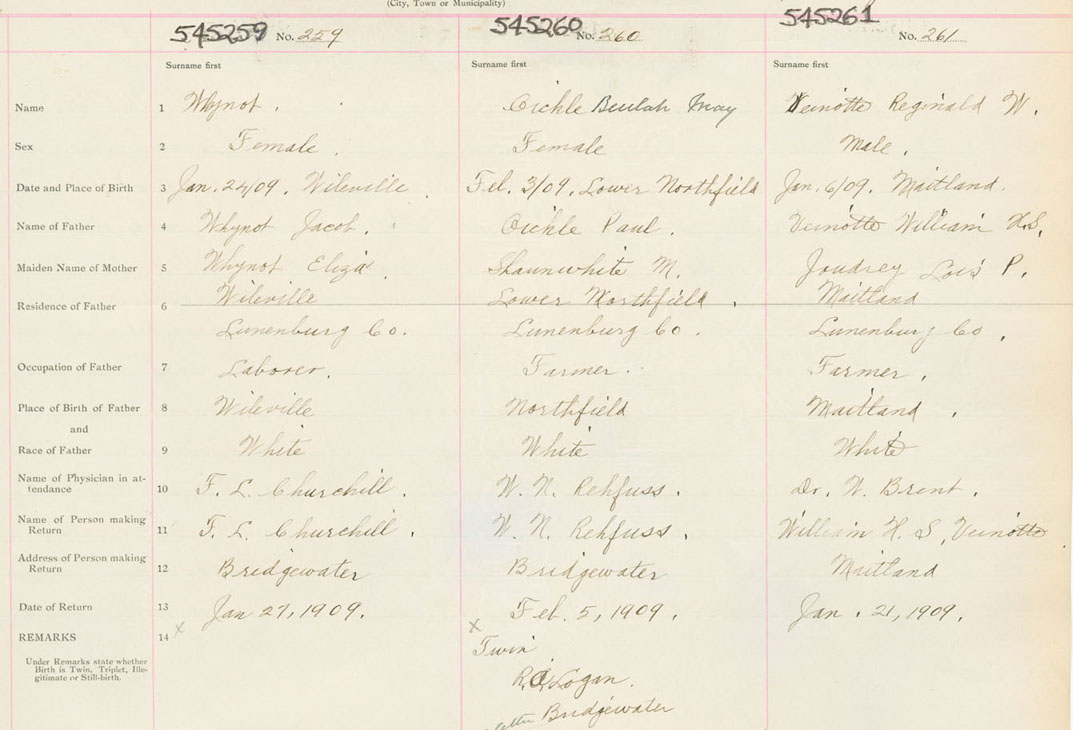 (City, Town or Municipality)
545259 No. 259 545260 No. 260 545261 No. 261
Surname first Surname first Surname first
Name 1 Whynot. Oickle Beulah May Veinotte Reginald W.
Sex 2 Female. Female Male.
Date and Place of Birth 3 Jan. 24/09. Wileville Feb. 3/09. Lower Northfield Jan. 6/09. Maitland.
Name of Father 4 Whynot Jacob. Oickle Paul. Veinotte William H.S.
Maiden Name of Mother 5 Whynot Eliza. Shaunwhite M. Joudrey Lois P.
Residence of Father 6 Wileville Lower Northfield. Maitland
Lunenburg Co. Lunenburg Co. Lunenburg Co.
Occupation of Father 7 Laborer. Farmer. Farmer.
Place of Birth of Father 8 Wileville Northfield Maitland.
and
Race of Father 9 White White White
Name of Physician in at-
tendance 10 F. L. Churchill. W. N. Rehfuss. Dr. W. Brent.
Name of Person making
Return 11 F. L. Churchill. W. N. Rehfuss. William H. S. Veinotte
Address of Person making
Return 12 Bridgewater Bridgewater Maitland
Date of Return 13 Jan 27, 1909. Feb. 5, 1909. Jan. 21, 1909.
REMARKS 14 x x
Twin
Under Remarks state whether
Birth is Twin, Triplet, Ille-
gitimate or Still-birth.
Logan.
Bridgewater